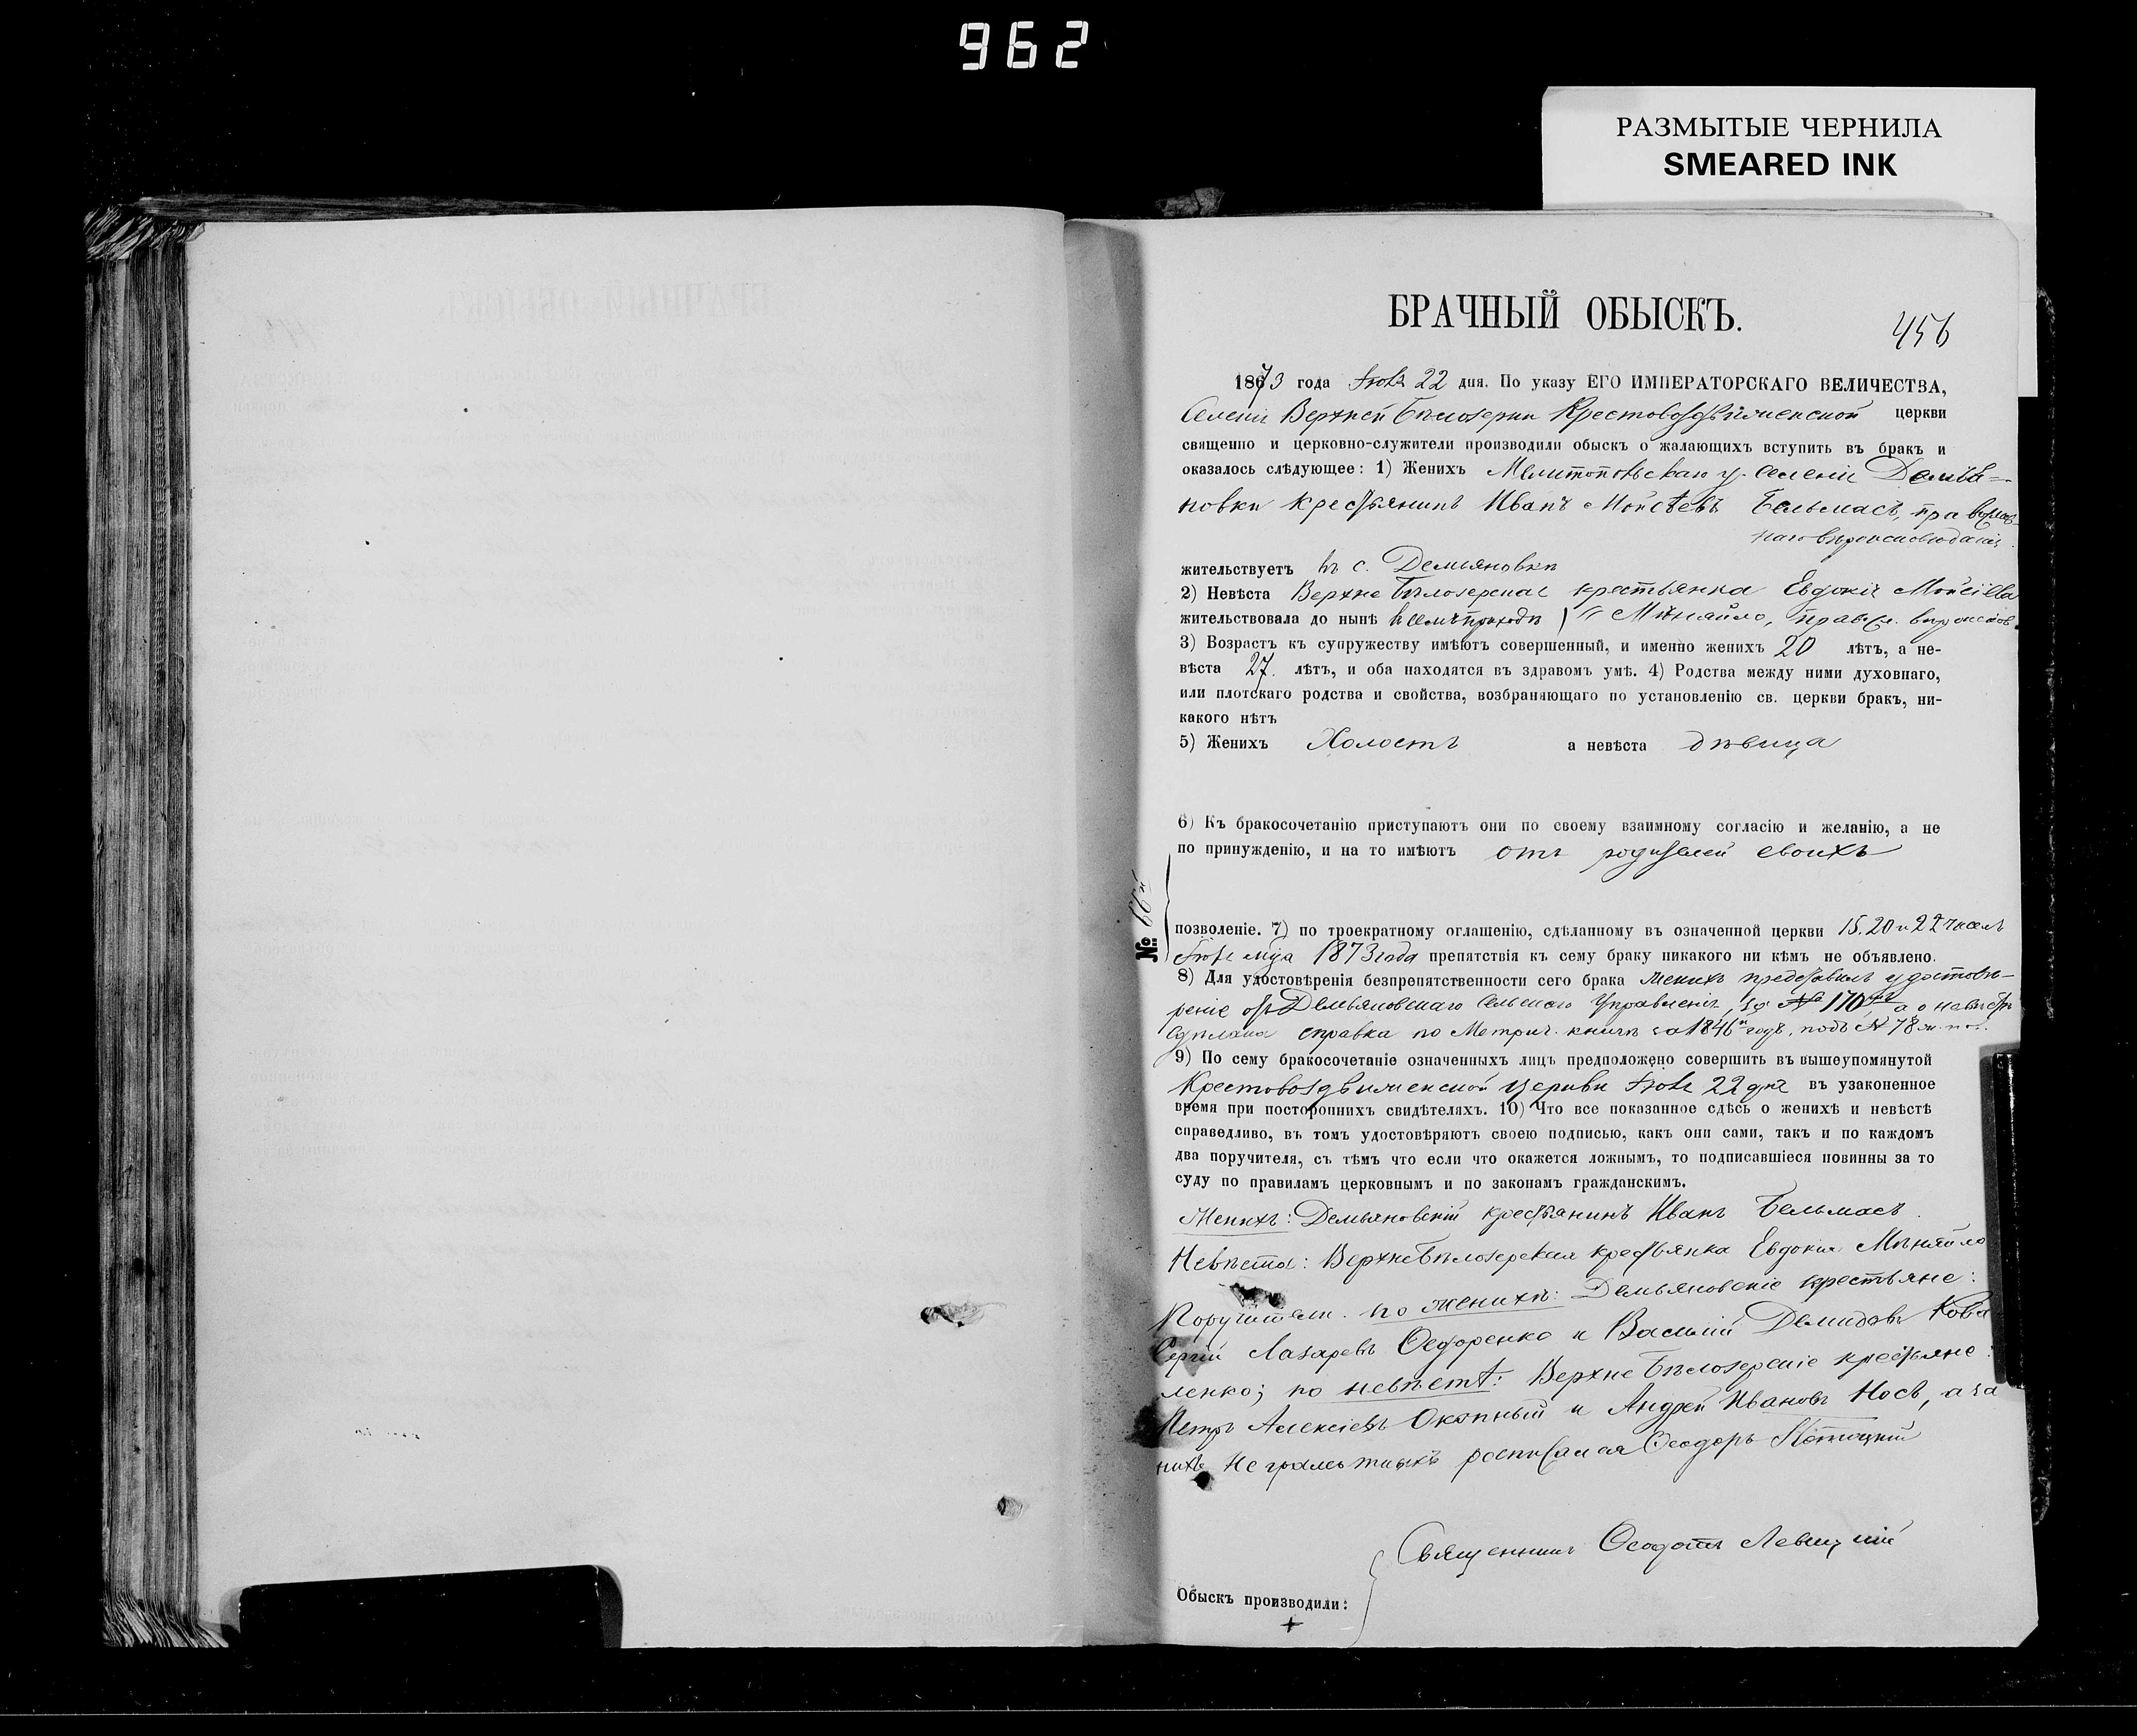 962
РАЗМЫТЫЕ ЧЕРНИЛА
SMEARED INK
БРАЧНЫЙ ОБЫСКЪ.
456
1873 года Іюля 22 дня. По указу ЕГО ИМПЕРАТОРСКАГО ВЕЛИЧЕСТВА,
Селенія Верхней Бѣлозерки Крестовоздвиженской церкви
священно и церковно-служители производили обыскъ о жалающихъ вступить въ бракъ и
оказалось слѣдующее: 1) Женихъ Мелитопольскаго у. селенія Демья-
новки крестьянинъ Иванъ Моисѣевъ Бельмасъ, православ-
наго вѣроисповѣданія
жительствуетъ въ с. Демьяновкѣ
2) Невѣста Верхне Бѣлозерская крестьянка Евдокія Моисіева
жительствовала до нынѣ въ семъ приходѣ Мѣняйло, правосл. вѣроисповѣ.
3) Возрастъ къ супружеству имѣютъ совершенный, и именно женихъ 20 лѣтъ, а не-
вѣста 27. лѣтъ, и оба находятся въ здравомъ умѣ. 4) Родства между ними духовнаго,
или плотскаго родства и свойства, возбраняющаго по установленію св. церкви бракъ, ни-
какого нѣтъ
5) Женихъ Холостъ а невѣста дѣвица
6) Къ бракосочетанію приступаютъ они по своему взаимному согласію и желанію, а не
по принужденію, и на то имѣютъ отъ родителей своихъ
№ 66й
позволеніе. 7) по троекратному оглашенію, сдѣланному въ означенной церкви 15, 20 и 22 чиселъ
Іюля м͠ца 1873 года препятствія къ сему браку никакого ни кѣмъ не объявлено.
8) Для удостовѣренія безпрепятственности сего брака женихъ представилъ удостовѣ-
реніе отъ Демьяновскаго Сельскаго Управленія, за № 170, а о невѣстѣ
сдѣлана справка по Метрич. книгѣ за 1846й годъ, подъ № 78
9) По сему бракосочетаніе означенныхъ лицъ предположено совершить въ вышеупомянутой
Крестовоздвиженской церкви Іюля 22 дня въ узаконенное
время при постороннихъ свидѣтеляхъ. 10) Что все показанное сдѣсь о женихѣ и невѣстѣ
справедливо, въ томъ удостовѣряютъ своею подписью, какъ они сами, такъ и по каждомъ
два поручителя, съ тѣмъ что если что окажется ложнымъ, то подписавшіеся повинны за то
суду по правиламъ церковнымъ и по законамъ гражданскимъ.
Женихъ: Демьяновскій крестьянинъ Иванъ Бельмасъ.
Невѣста: ВерхнеБѣлозерская крестьянка Евдокія Мѣняйло
Поручители по женихѣ: Демьяновскіе крестьяне:
Сергій Лазаревъ Ѳедоренко и Василій Демидовъ Кова
ленко; по невѣстѣ: Верхне Бѣлозерскіе крестьяне:
Петръ Алексіевъ Окопный и Андрей Ивановъ Носъ, а за
нихъ Неграмотныхъ росписался Ѳеодоръ
Священникъ Ѳеодотъ Левицкій
Обыскъ производили: